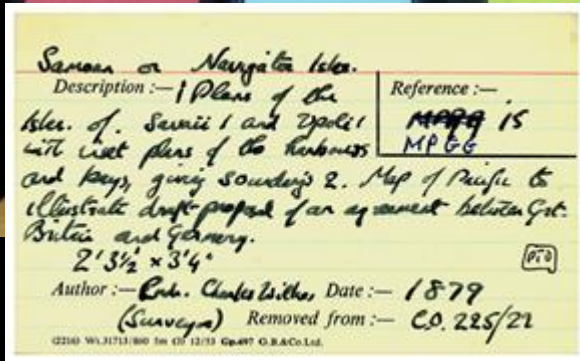 Samoan or Navigator Isles.
Description :— 1 Plans of the
Reference :—
Isles. of. Savaii 1 and Upolu 1
MPGG 15
with inset plans of the harbours
MPGG
and bays, giving soundings 2. Map of Pacific to
illustrate draft proposal of an agreement between Grt.
Britain and Germany.
2' 3½ × 3' 4"
PTO
Author :— Comdr. Charles Wilkes Date :— 1879
(Surveyor) Removed from :— C.O. 225/22
(2216) Wt.31713/860 5m (3) 12/53 Gp.697 G.B.&Co.Ltd.